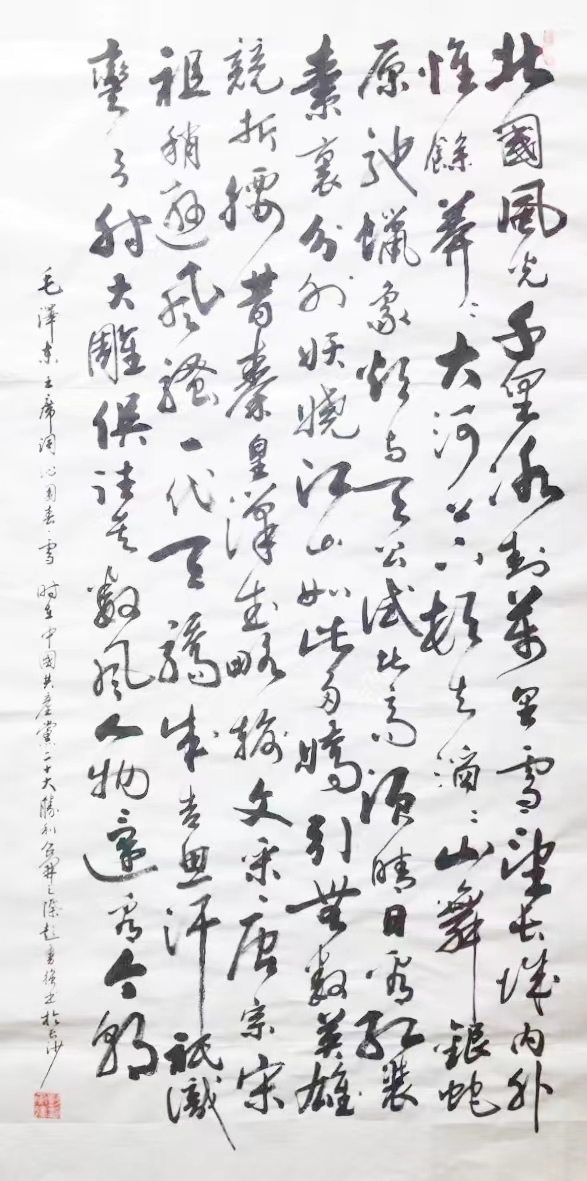 北國風光千里冰封萬里雪望長城内外
惟餘莽〻大河上下頓失滔〻山舞銀蛇
原馳蠟象欲與天公試比高須晴日看紅裝
素裹分外妖嬈江山如此多嬌引無數英雄
競折腰昔秦皇漢武略輸文采唐宗宋
祖稍遜風騷一代天驕成吉思汗祇識
彎弓射大雕俱往矣數風人物還看今朝
毛澤東主席詞沁園春雪 時在中國共產黨二十大勝利召開之際 書於長沙